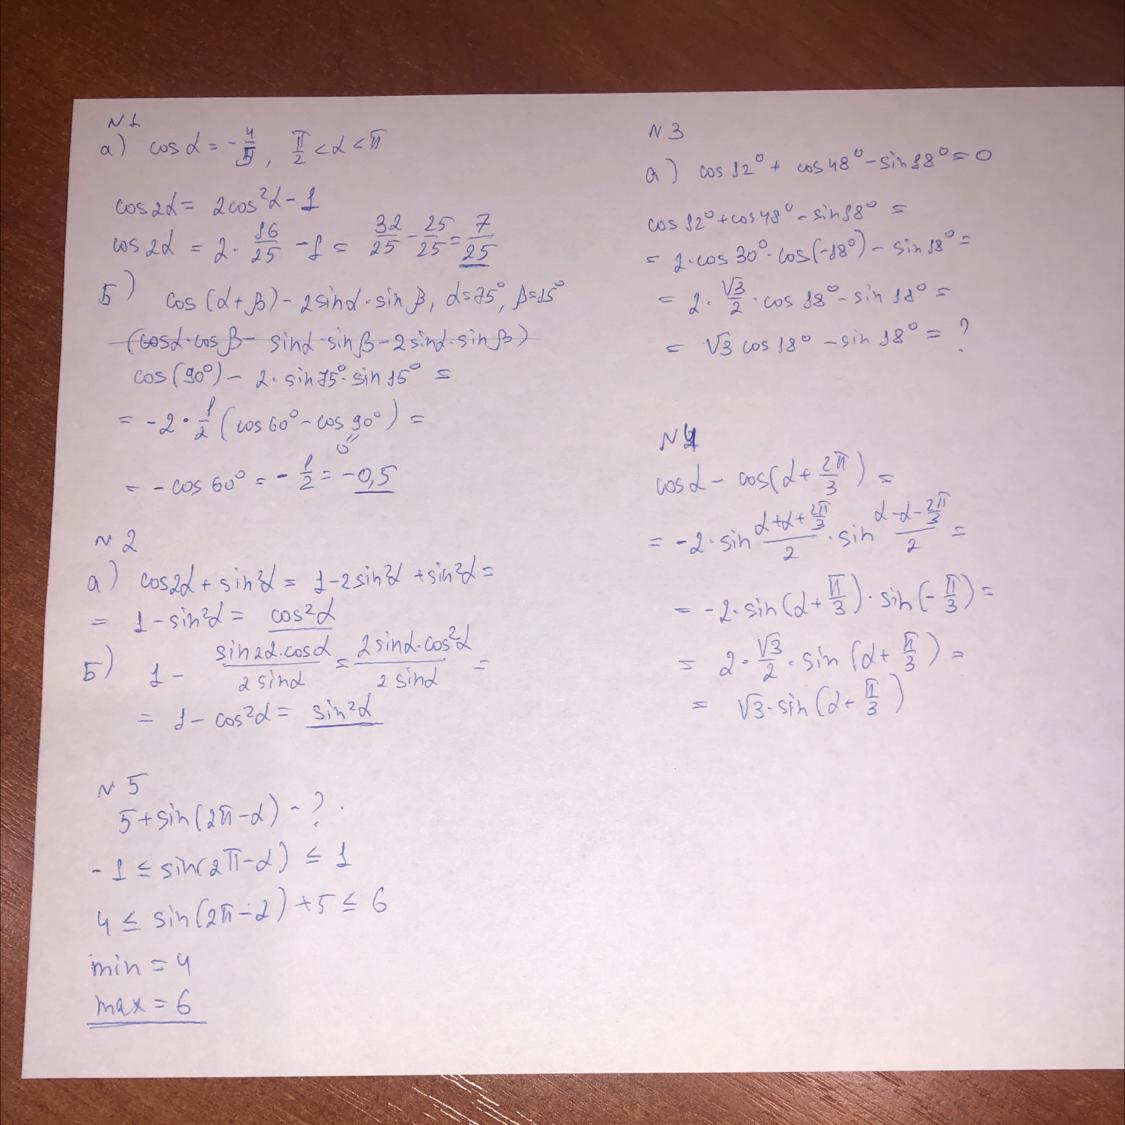 N1
a) cos α = -4/5, π/2 < α < π
cos2α = 2cos²α - 1
cos2α = 2 · 16/25 - 1 = 32/25 - 25/25 = 7/25
Б) cos(α+β) - 2sinα·sinβ, α=75°, β=15°
(cosα·cosβ - sinα·sinβ - 2sinα·sinβ)
cos(90°) - 2·sin75°·sin15° =
= -2 · 1/2 (cos60° - cos90°) =
0
= -cos60° = -1/2 = -0,5
N2
a) cos2α + sin²α = 1-2sin²α + sin²α =
= 1 - sin²α = cos²α
Б) 1 - sin2α·cosα/2sinα = 2sinα·cos²α/2sinα =
= 1 - cos²α = sin²α
N5
5+sin(2π-α) - ?
-1 ≤ sin(2π-α) ≤ 1
4 ≤ sin(2π-α) + 5 ≤ 6
min = 4
max = 6
N3
a) cos12° + cos48° - sin18° = 0
cos12° + cos48° - sin18° =
= 2·cos30°·cos(-18°) - sin18° =
= 2 · √3/2 · cos18° - sin18° =
= √3 cos18° - sin18° = ?
N4
cosα - cos(α + 2π/3) =
= -2·sin (α+α+2π/3)/2 · sin (α-α-2π/3)/2 =
= -2·sin(α+π/3)·sin(-π/3) =
= 2 · √3/2 · sin(α+π/3) =
= √3·sin(α+π/3)